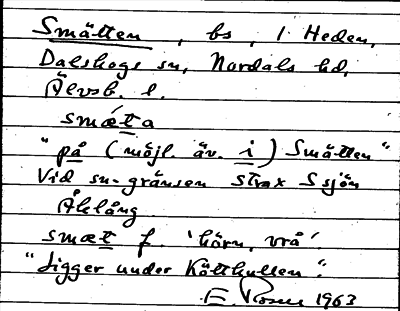 Smätten, bs, i Heden,
Dalskogs sn, Nordals hd,
Älvsb. l.
smæ̀ta
"på (möjl. äv. i) Smätten"
Vid sn-gränsen strax S sjön
Åklång
smæt f. 'hörn, vrå'.
"Ligger under Kötthullen".
E. Rosén 1963